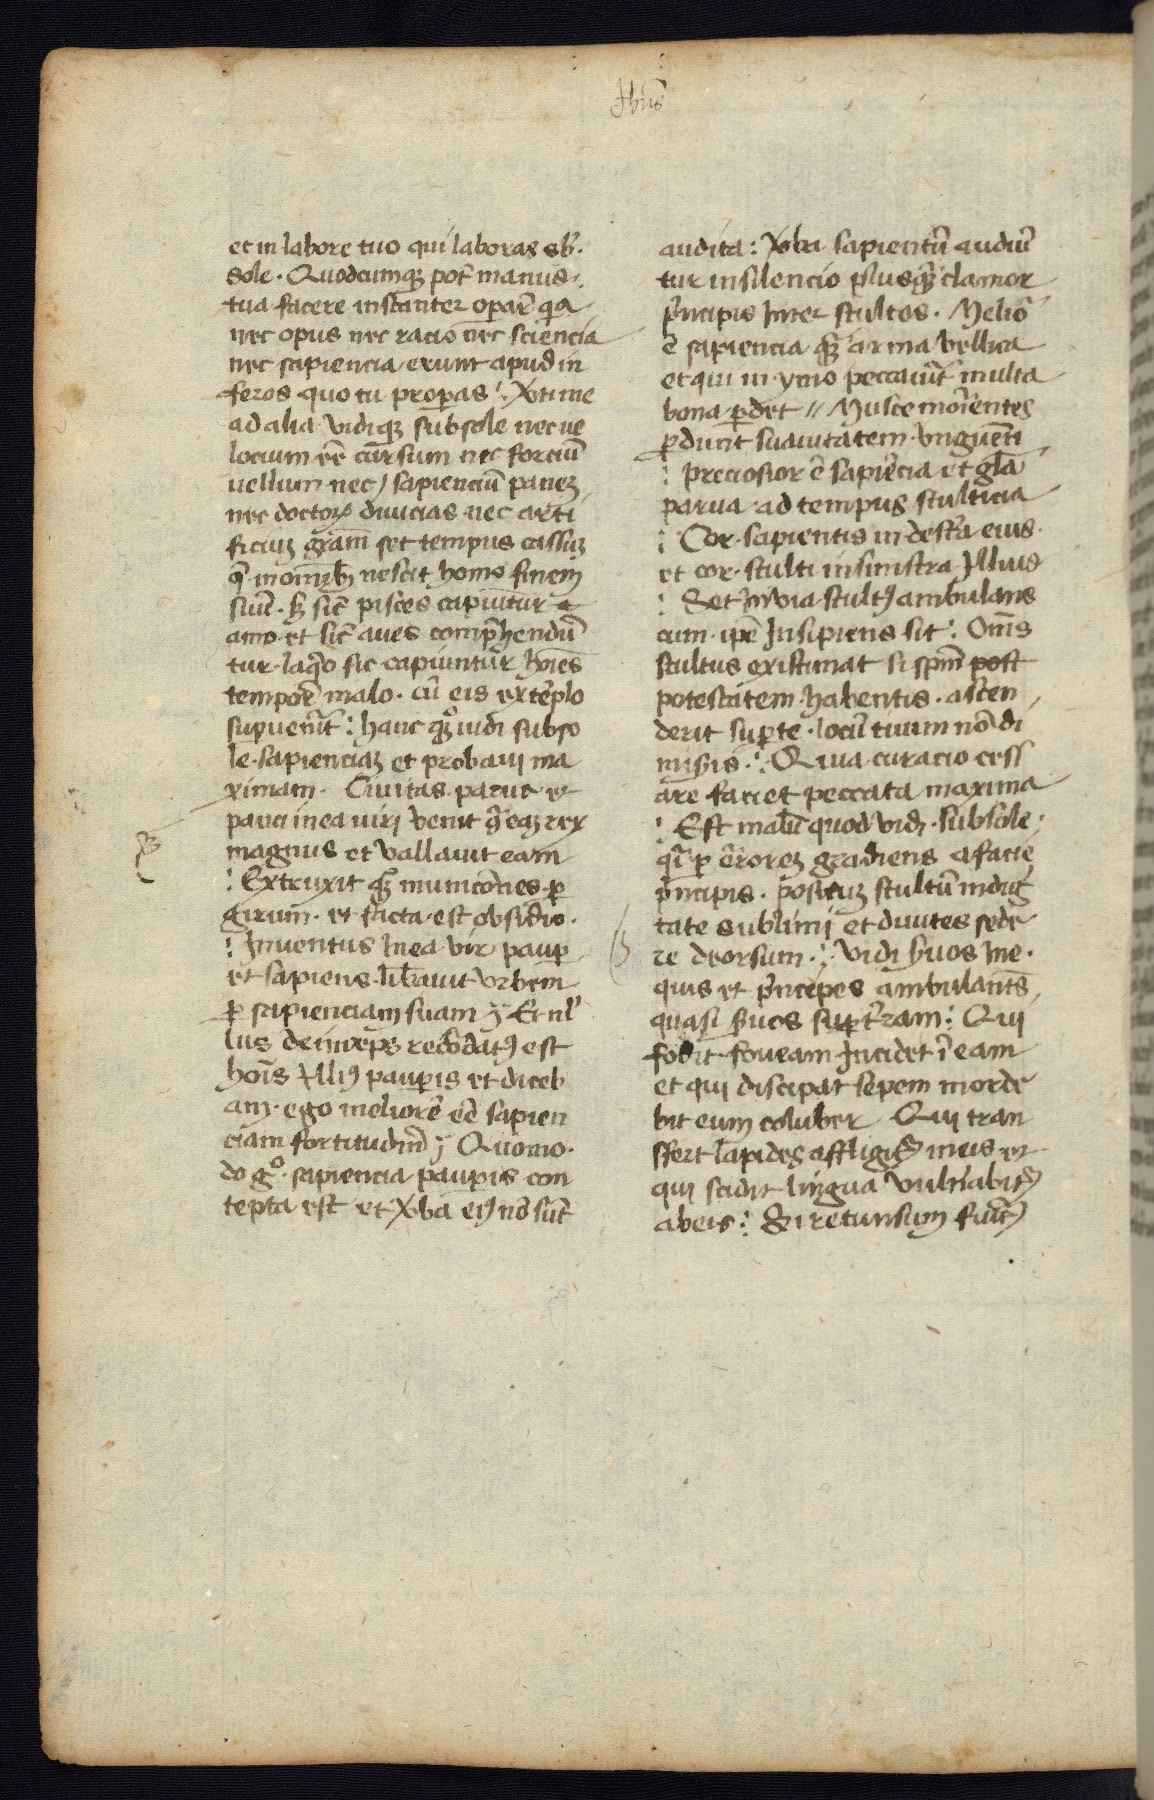 Jhus
et in labore tuo qui laboras sb
sole · Quodcumqz pot manus
tua facere instanter oparē qa
nec opus nec racio nec sciencia
nec sapiencia erunt apud in
feros quo tu properas
ad alia vidiqz sub sole nec ve
locium eē cursum nec forciū
vellum nec sapienciū panez
nec doctorꝝ diuicias nec arti
ficiuz gram set tempus casūz
nescit homo finem
suū · sꝫ sic pisces capiuntur
amo et sic aues comphendū
tur laqo sic capiuntur hoīes
tempore malo · cū eis extēplo
supuenīt : hanc qꝫ vidi sub so
le sapienciaz et probaui ma
ximam · Ciuitas parua et
pauci in ea viri venit ꝯ eaz rex
magnus et vallauit eam
: Extruxit qꝫ municōnes ꝑ
girum · et facta est obsidio ·
: Inuentus in ea vir pauꝑ
et sapiens libauit vrbem
ꝑ sapienciam suam Et nl
lus deinceps recōdatꝰ est
hoīs illiꝰ pauꝑis et diceb
am · ego meliorē eē sapien
ciam fortitudine Quomo
do gº sapiencia pauꝑis con
tepta est et vba eiꝰ nō sūt
audita : vba sapientū audiū
tur in silencio plusqꝫ clamor
pncipis inter stultos · Meliō
ē sapiencia qꝫ arma bellica
et qui in vno peccauīt multa
bona ꝑdet // Musce morientes
ꝑdunt suauitatem vnguēti
: preciosior ē sapiēcia et gla
parua ad tempus stulticia
: Cor sapientis in destra eius
et cor stulti in sinistra illius
: Set in via stultꝰ ambulans
cum ipē insipiens sit : Omīs
stultus existimat si spm post
potestatem habentis · ascen
derit suꝑ te locū tuum nō di
misis : Quia curacio cess
are faciet peccata maxima
: Est malū quod vidi sub sole
qi ꝑ erorez gradiens a facie
pncipis · posituz stultū in dig
tate sublimi et diuites sede
re deorsum : vidi suos in e
quis et pncipes ambulantes
quasi suos suꝑ terram : Qui
fodit foueam incidet ī eam
et qui discipat sepem morde
bit eum coluber Qui tran
sfert lapides affligitur in eis et
qui scidit lingua vulnabitꝰ
ab eis : Si retunsum fuit